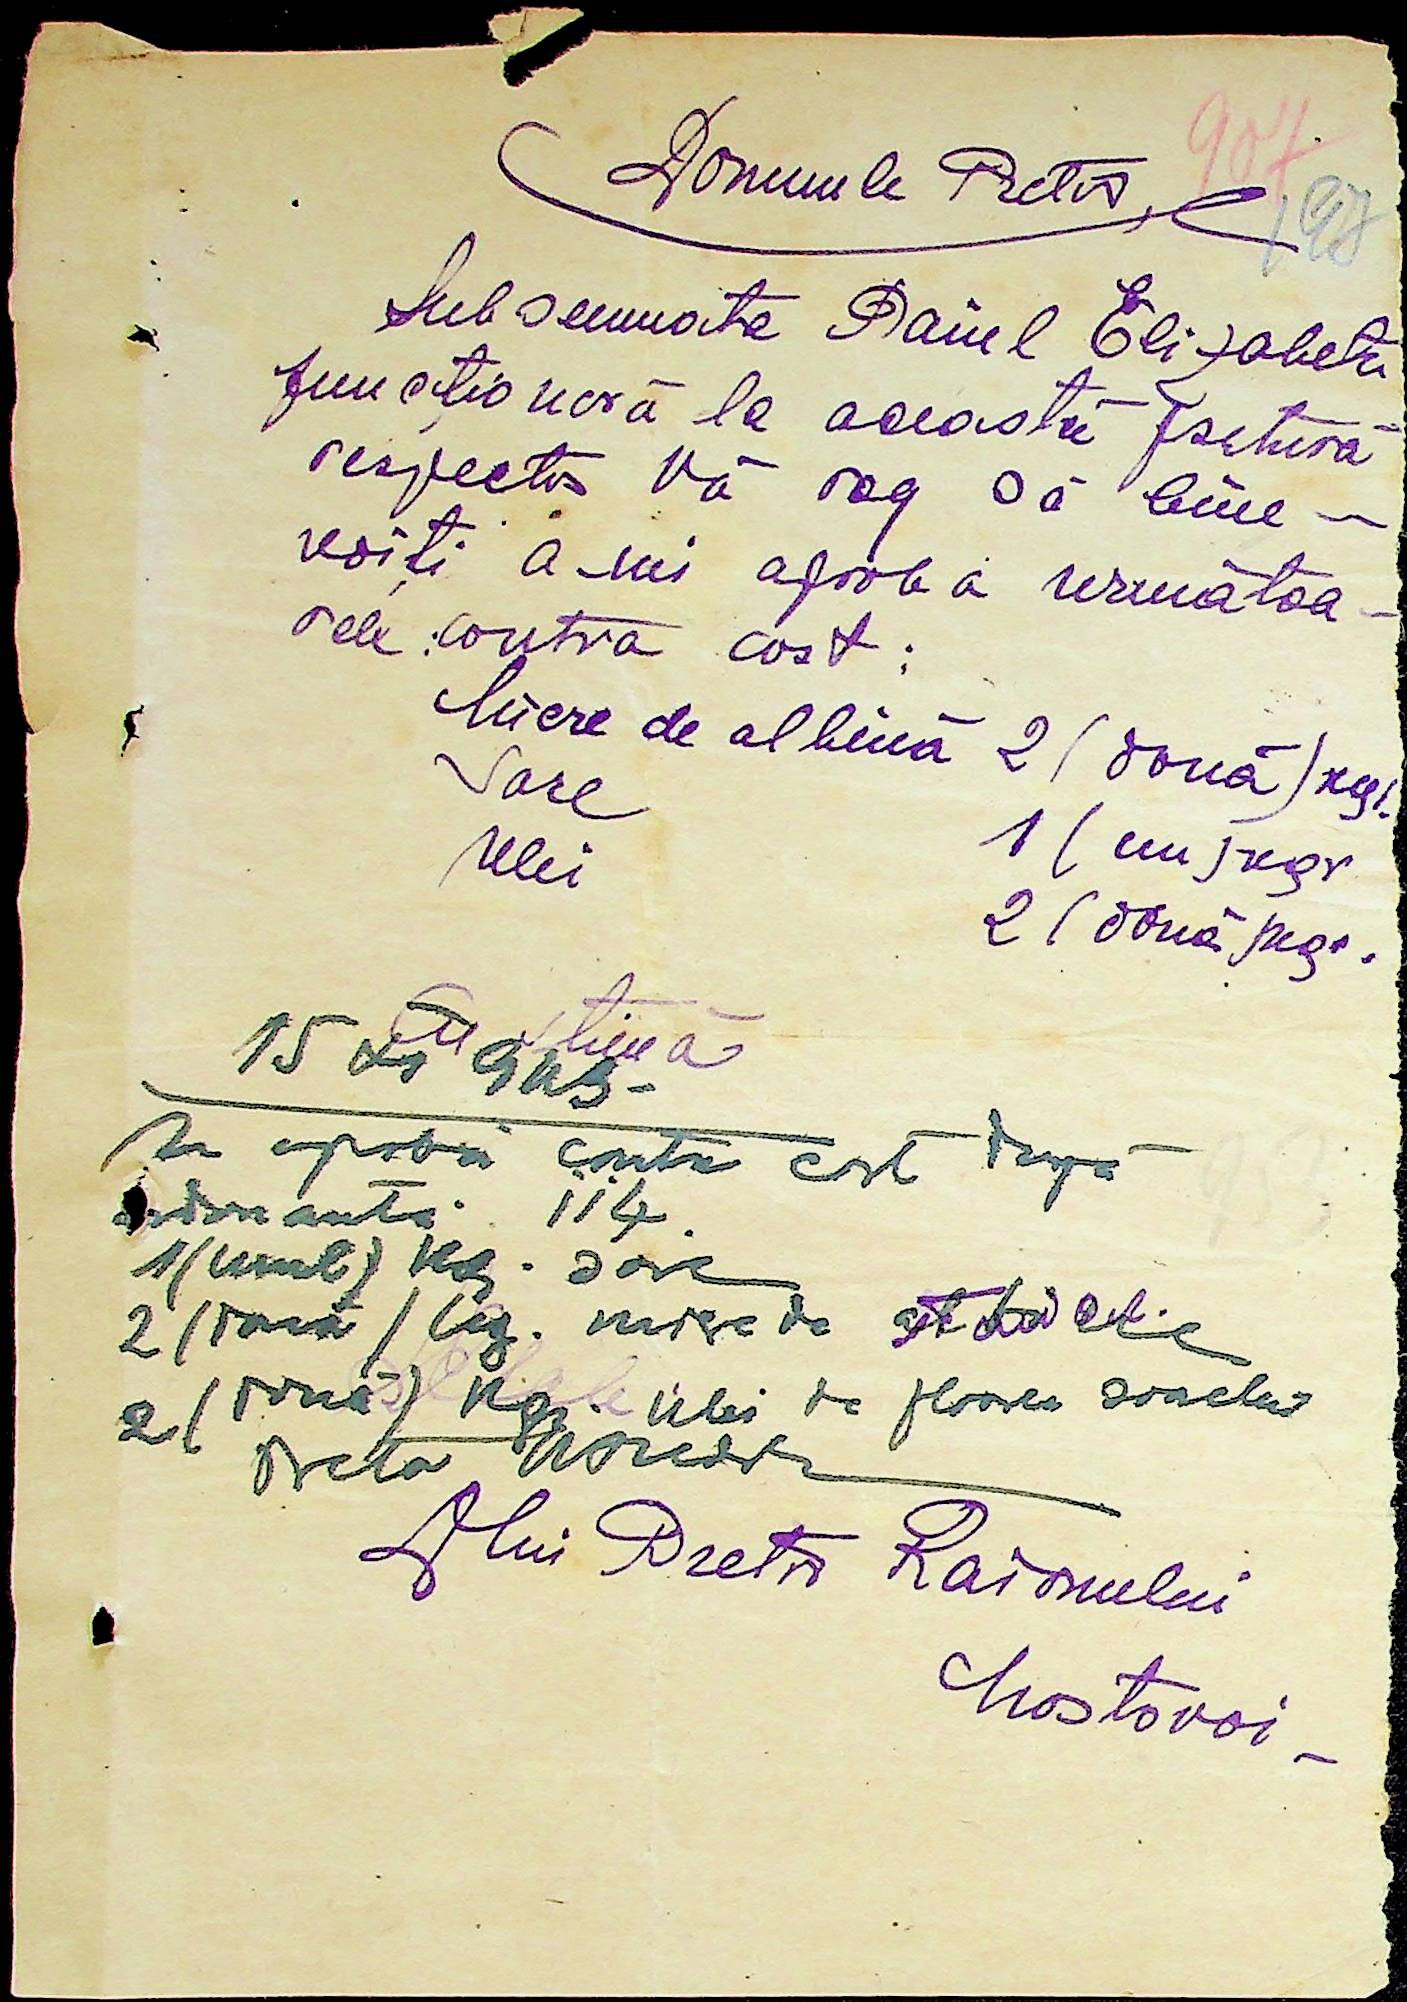 907
197
Domnule Pretor,
Subsemnata Daniel Elizabeta
funcționară la această Pretură
respectos vă rog să bine-
voiți a-mi aproba următoa-
rele contra cost:
Miere de albină 2 (două) kgr.
Sare 1 (un) kgr
Ulei 2 (două) kgr.
Cu stimă
15
Se aprobă contra cost după
ordonanta 114.
1 (unul) Kg. sare
2 (două) Kg. miere de albine
2 (două) Kg. Ulei de floarea soarelui
Dlui Pretor Raionului
Mostovoi-